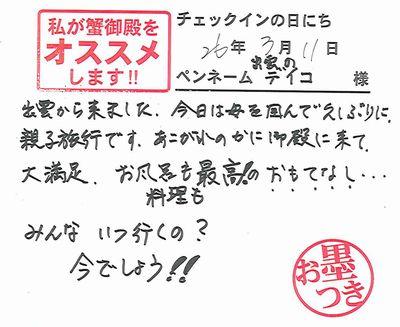 私が蟹御殿を
オススメ
します!!
チェックインの日にち
26年3月11日
出雲の
ペンネーム デイコ 様
出雲から来ました。今日は母を囲んで久しぶりに、
親子旅行です。あこがれのかに御殿に来て、
大満足。お風呂も最高!!のおもてなし・・・
料理も
みんな いつ行くの？
今でしょう!!
お墨つき